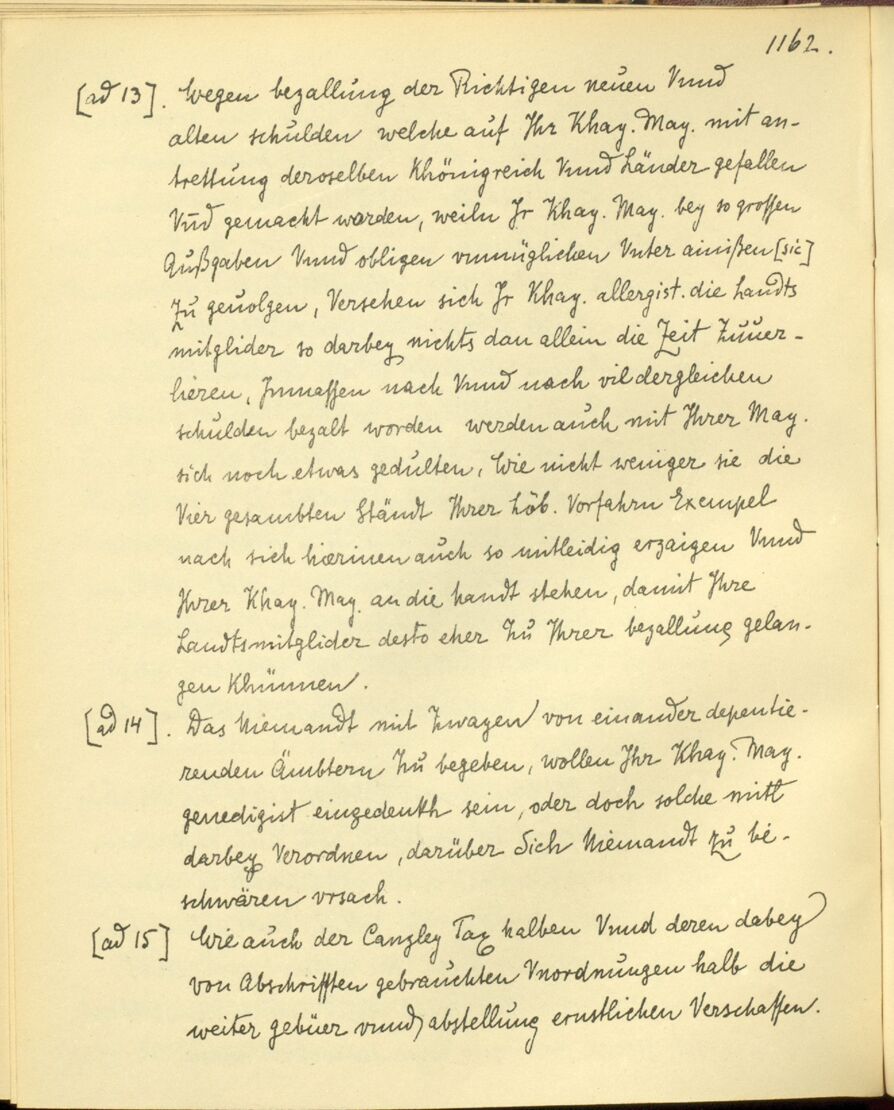 1162.
[ad 13]. Wegen bezallung der Richtigen neuen Vnnd
alten schulden welche auf Ihr Khay. May. mit an-
trettung deroselben Khönigreich Vnnd Länder gefallen
Vn̄d gemacht worden, weiln Ir Khay. May. bey so grossen
Außgaben Vnnd obligen vnmüglichen Vnter ainißen [sic]
Zu geuolgen, Versehen sich Ir Khay. allergist. die Landts
mitglider so darbey nichts dan allein die Zeit Zuuer-
lieren, Inmassen nach Vnnd nach vil dergleichen
schulden bezalt worden werden auch mit Ihrer May.
sich noch etwas gedulten, Wie nicht weniger sie die
Vier gesambten Ständt Ihrer Löb. Vorfahrn Exempel
nach sich hierinen auch so mitleidig erzaigen Vnnd
Ihrer Khay. May. an die handt stehen, damit Ihre
Landtsmitglider desto eher Zu Ihrer bezallung gelan-
gen Khünnen.
[ad 14]. Das Niemandt mit Zwayen von einander depentie-
renden Ämbtern Zu begeben, wollen Ihr Khay. May.
genedigist eingedenkh sein, oder doch solche mitl
darbey Verordnen, darüber Sich Niemandt zu be-
schwären vrsach.
[ad 15] Wie auch der Canzley Tax halben Vnnd deren dabey
von Abschrifften gebrauchten Vnordnungen halb die
weiter gebüer vnnd abstellung ernstlichen Verschaffen.